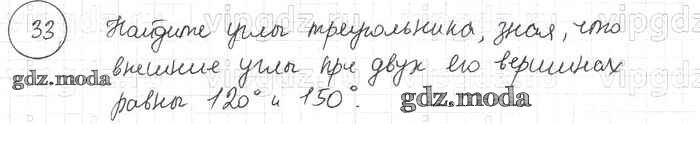 33 Найдите углы треугольника, зная, что
внешние углы при двух его вершинах
gdz.moda
равны 120° и 150°. gdz.moda